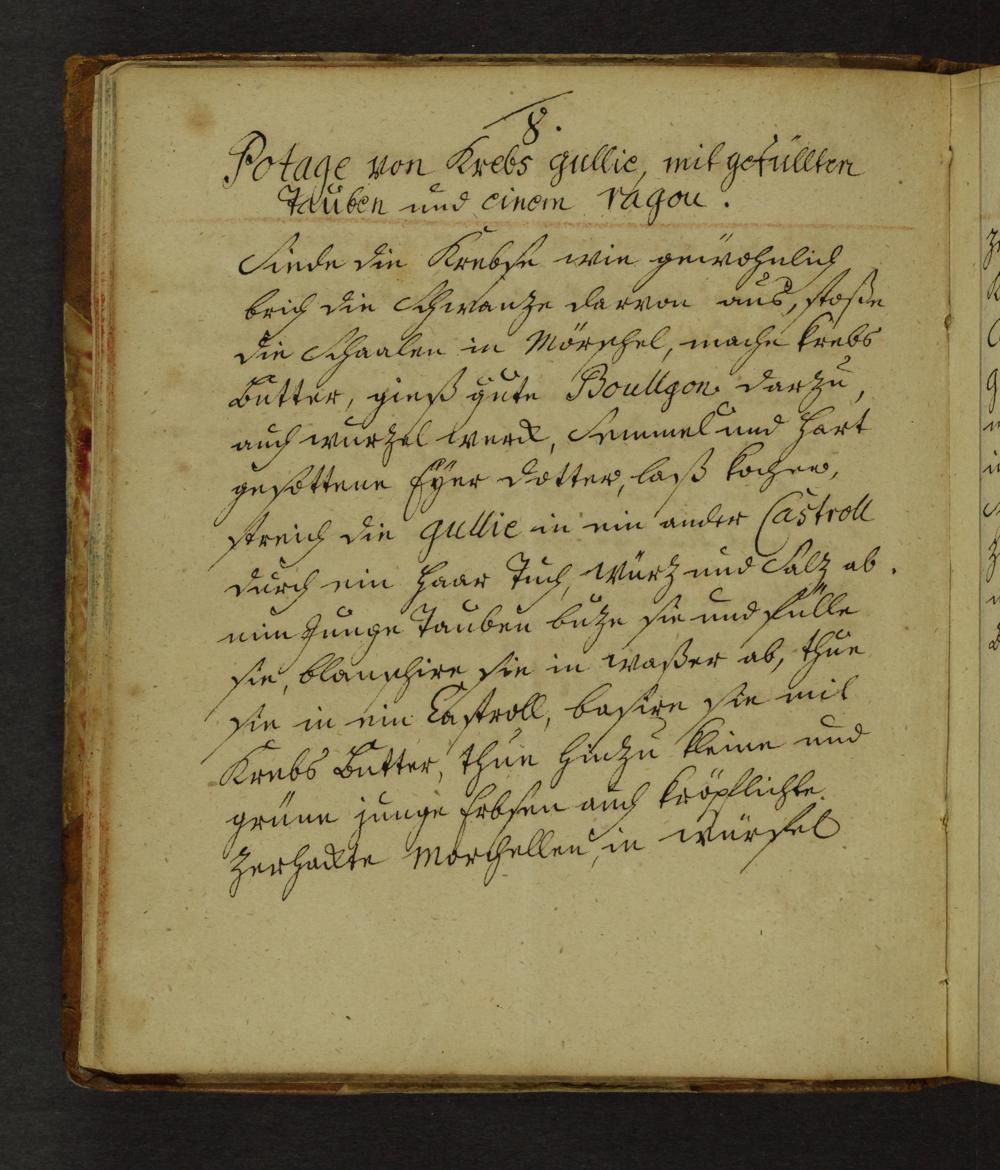 8.
Potage von Krebs gullie, mit gefüllten
Tauben und einem ragou.
Siede die Krebse wie gewöhnlich
brich die Schwantze darvon aus, stosße
die Schaalen in Mörschel, mache krebs
Butter, gieß gute Boullgon darzu,
auch wurzel werck, Semmel und hart
gesottene Eÿer dotter, laß kochen,
streich die gullie in ein ander Castroll
durch ein haar Tuch, würz und Salz ab.
nim Junge Tauben butze sie und fülle
sie, blanschire sie in waßer ab, thue
sie in ein Castroll, basire sie mit
Krebs Butter, thue hinzu kleine und
grüne junge Erbsen auch kröpflichte
zerhackte Morchellen, in würfel